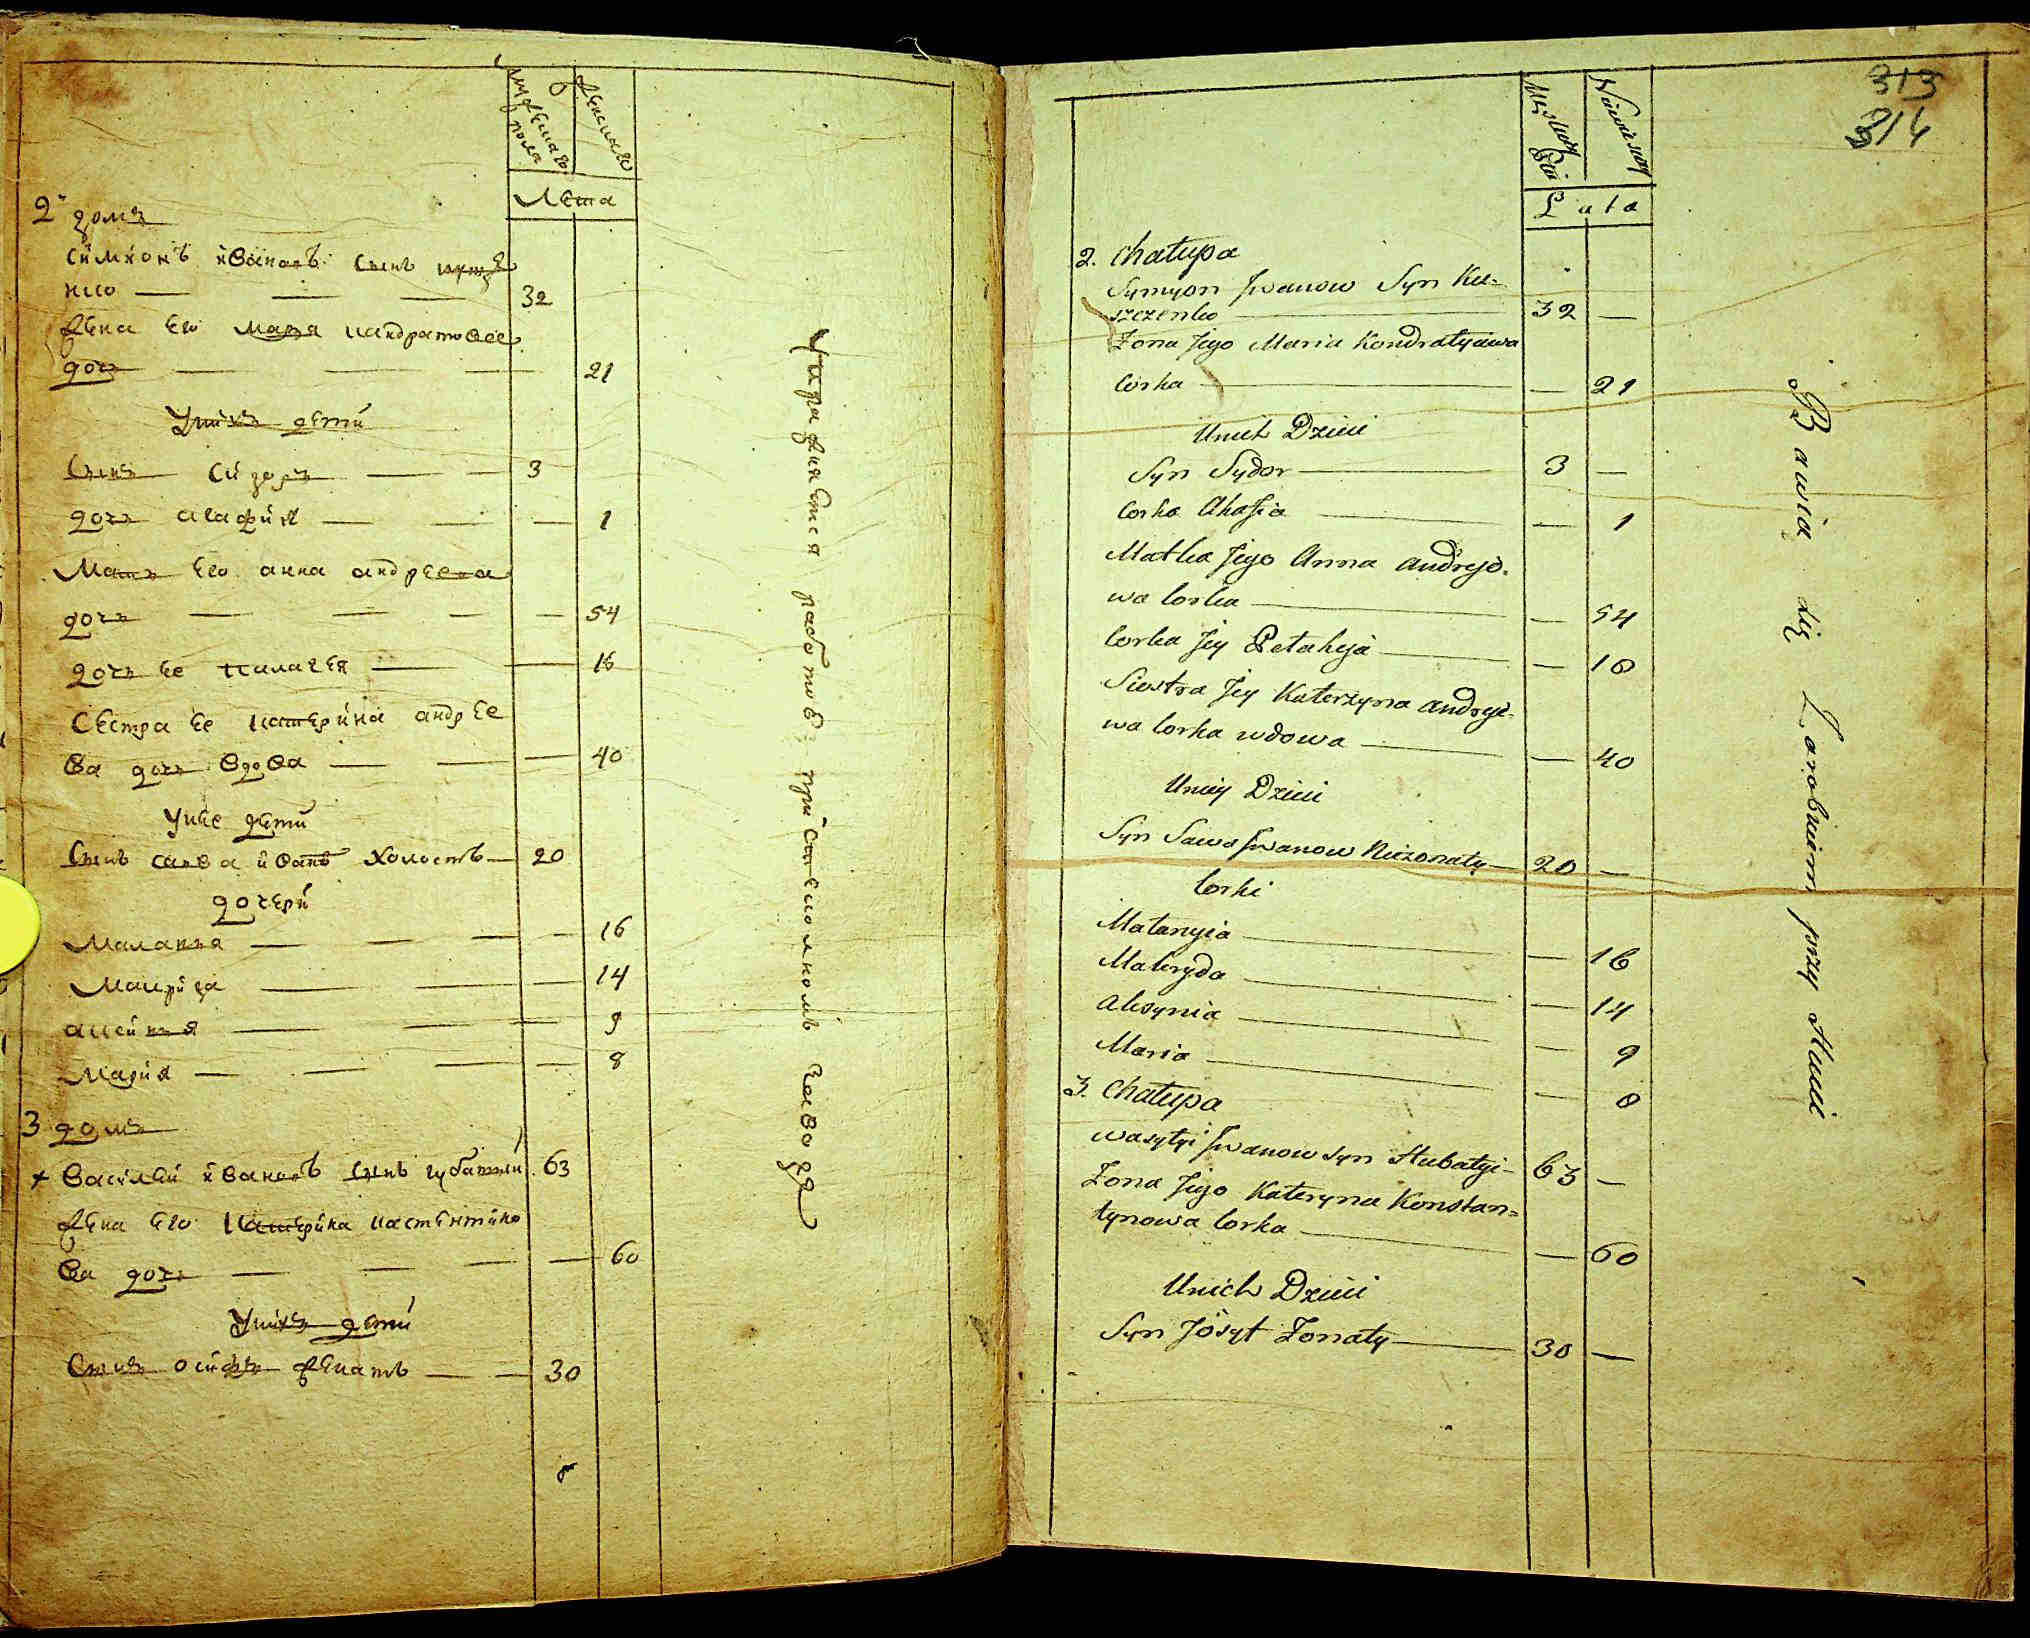 мужескаго пола
женскаго
Лета
2 домъ
Симионъ Ивановъ сынъ Куще
нко 32
жена его Марья Кандратовее
дочь 21
У нихъ дети
Сынъ Сидоръ 3
дочь агафия 1
Мать его анна андреева
дочь 54
дочь ее Палагея 18
Сестра ее Катерина андрее
ва дочь вдова 40
У нее дети
Сынъ савва иванъ холостъ 20
дочери
Маланья 16
Макрида 14
аксинья 9
Мария 8
3 домъ
+ Василий Ивановъ сынъ губатый 63
жена его Катерина кастентино
ва дочь 60
У нихъ дети
Сынъ осифъ женатъ 30
работов при
313
314
Męskoy Płci
Niewieskoy
Lata
2. Chałupa
Symyon Jwanow Syn Ku=
szczenko 32 —
Żona Jego Maria Kondratyiawa
Corka — 21
Unich Dzieci
Syn Sydor 3 —
Corka Ahafia — 1
Matka Jego Anna Andrejo-
wa Corka — 54
Corka Jey Pełaheja — 18
Siostra Jey Katerżyna Andreje-
wa Corka wdowa — 40
Uniey Dzieci
Syn Sawa Jwanow Nieżonaty 20 —
Corki
Małanyia — 16
Makryda — 14
Aksynia — 9
Maria — 8
3. Chałupa
Wasylyi Jwanow syn Hubatyi 63 —
Żona Jego Kateryna Konstan=
tynowa Corka — 60
Unich Dzieci
Syn Jósyf Żonaty 30 —
Bawia się Zarobkiem przy Hucie